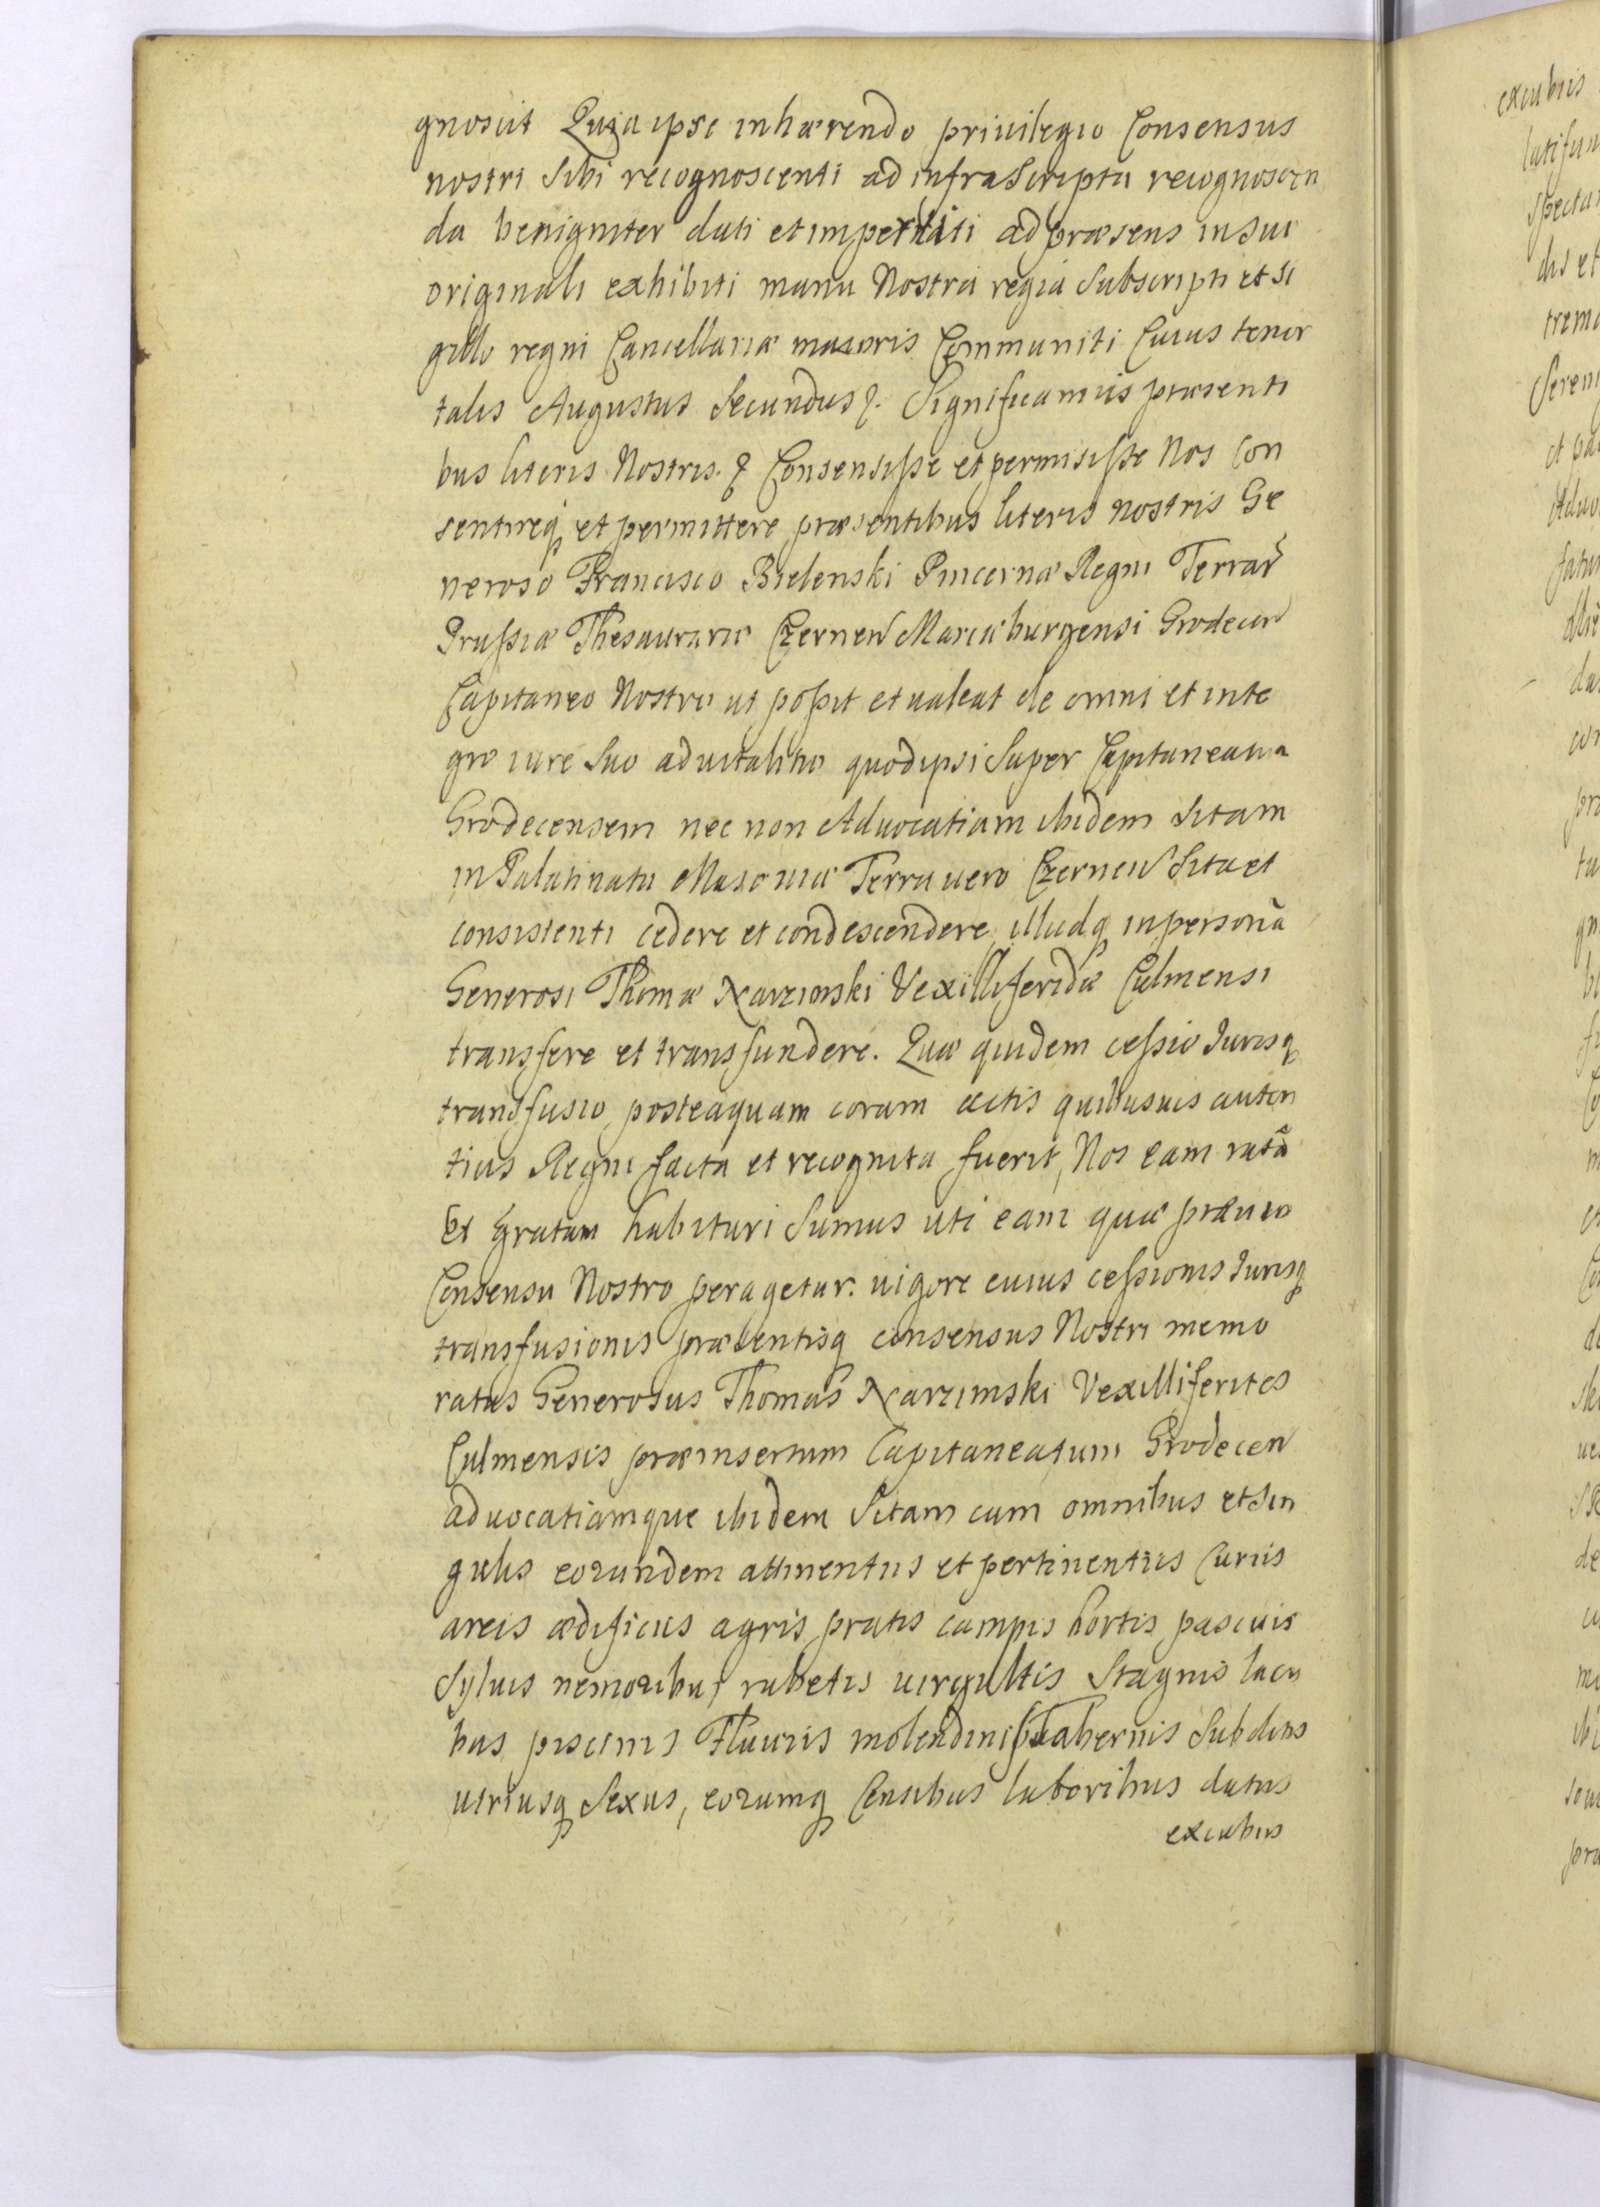 gnoscit Quia ipse inhærendo priuilegio Consensus
nostri Sibi recognoscenti ad infraScripta recognoscen
da benigniter dati et impertiti ad præsens in Sui
originali exhibiti manu Nostra regia Subscripti et Si
gillo regni Cancellariæ maioris Communiti Cuius tenor
talis Augustus Secundus &. Significamus præsenti
bus literis Nostris. & Consensisse et permisisse Nos Con
sentireq et permittere præsentibus literis nostris Ge
neroso Francisco Bielenski Pincernæ Regni Terrar
Prussiæ Thesaurario Czernen Mariæburgensi Grodecen
Capitaneo Nostro ut possit et ualeat de omni et inte
gro iure Suo aduitalitio quod ipsi Super Capitaneatum
Grodecensem nec non Aduocatiam ibidem Sitam
in Palatinatu Masouiæ Terra uero Czernen Sita et
consistenti cedere et condescendere illudq in personã
Generosi Thomæ Narzimski Vexilliferidæ Culmensi
transfere et transfundere. Quæ quidem cessio Jurisq
transfusio posteaquam coram actis quibusuis auten
ticis Regni facta et recognita fuerit, Nos eam ratã
et gratam habituri Sumus uti eam quæ præuio
Consensu Nostro peragetur. uigore cuius cessionis Jurisq
transfusionis præsentisq consensus Nostri memo
ratus Generosus Thomas Narzimski Vexilliferites
Culmensis præinsertum Capitaneatum Grodecen
aduocatiamque ibidem Sitam cum omnibus et Sin
gulis eorundem attinentiis et pertinentiis Curiis
areis ædificiis agris pratis campis hortis pascuis
Syluis nemoribus rubetis uirgultis Stagnis lacu
bus piscinis Fluuiis molendinis Tabernis Subditis
utriusq Sexus, eorumq Censibus laboribus datiis
excubiis